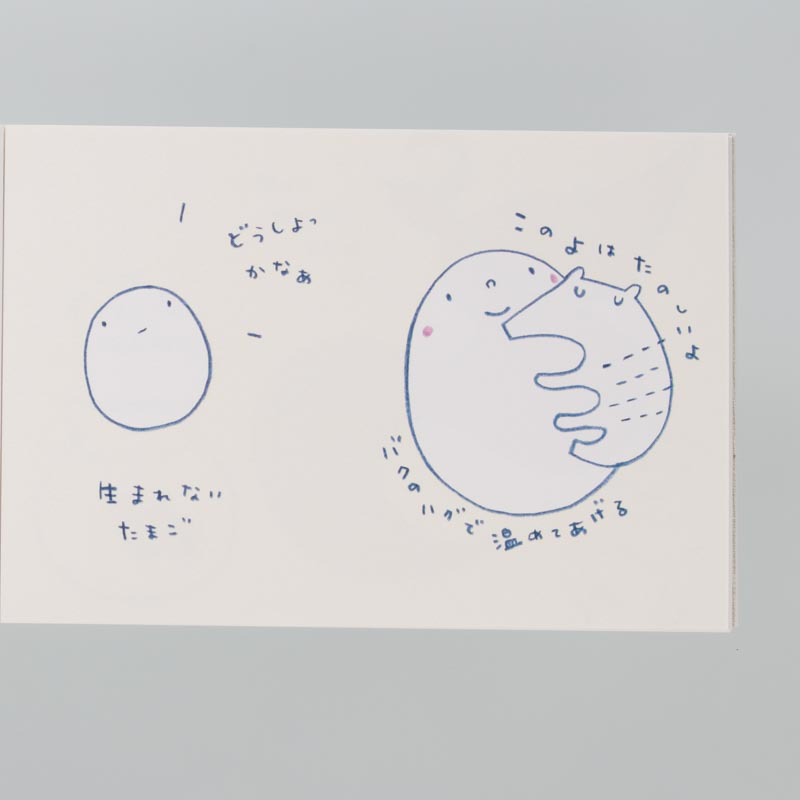 どうしよっ
かなぁ
生まれない
たまご
このよはたのしいよ
バクのハグで温めてあげる